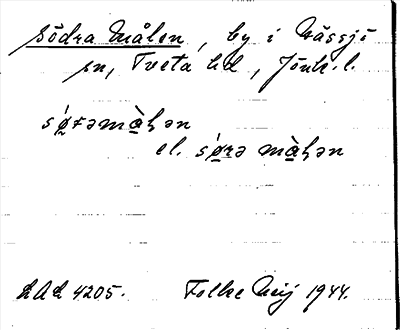 Södra Målen, by i Nässjö
sn, Tveta hd, Jönk. l.
sǿrəmàɫən
el. sǿrə màɫən
LAL 4205. Folke Meij 1944.